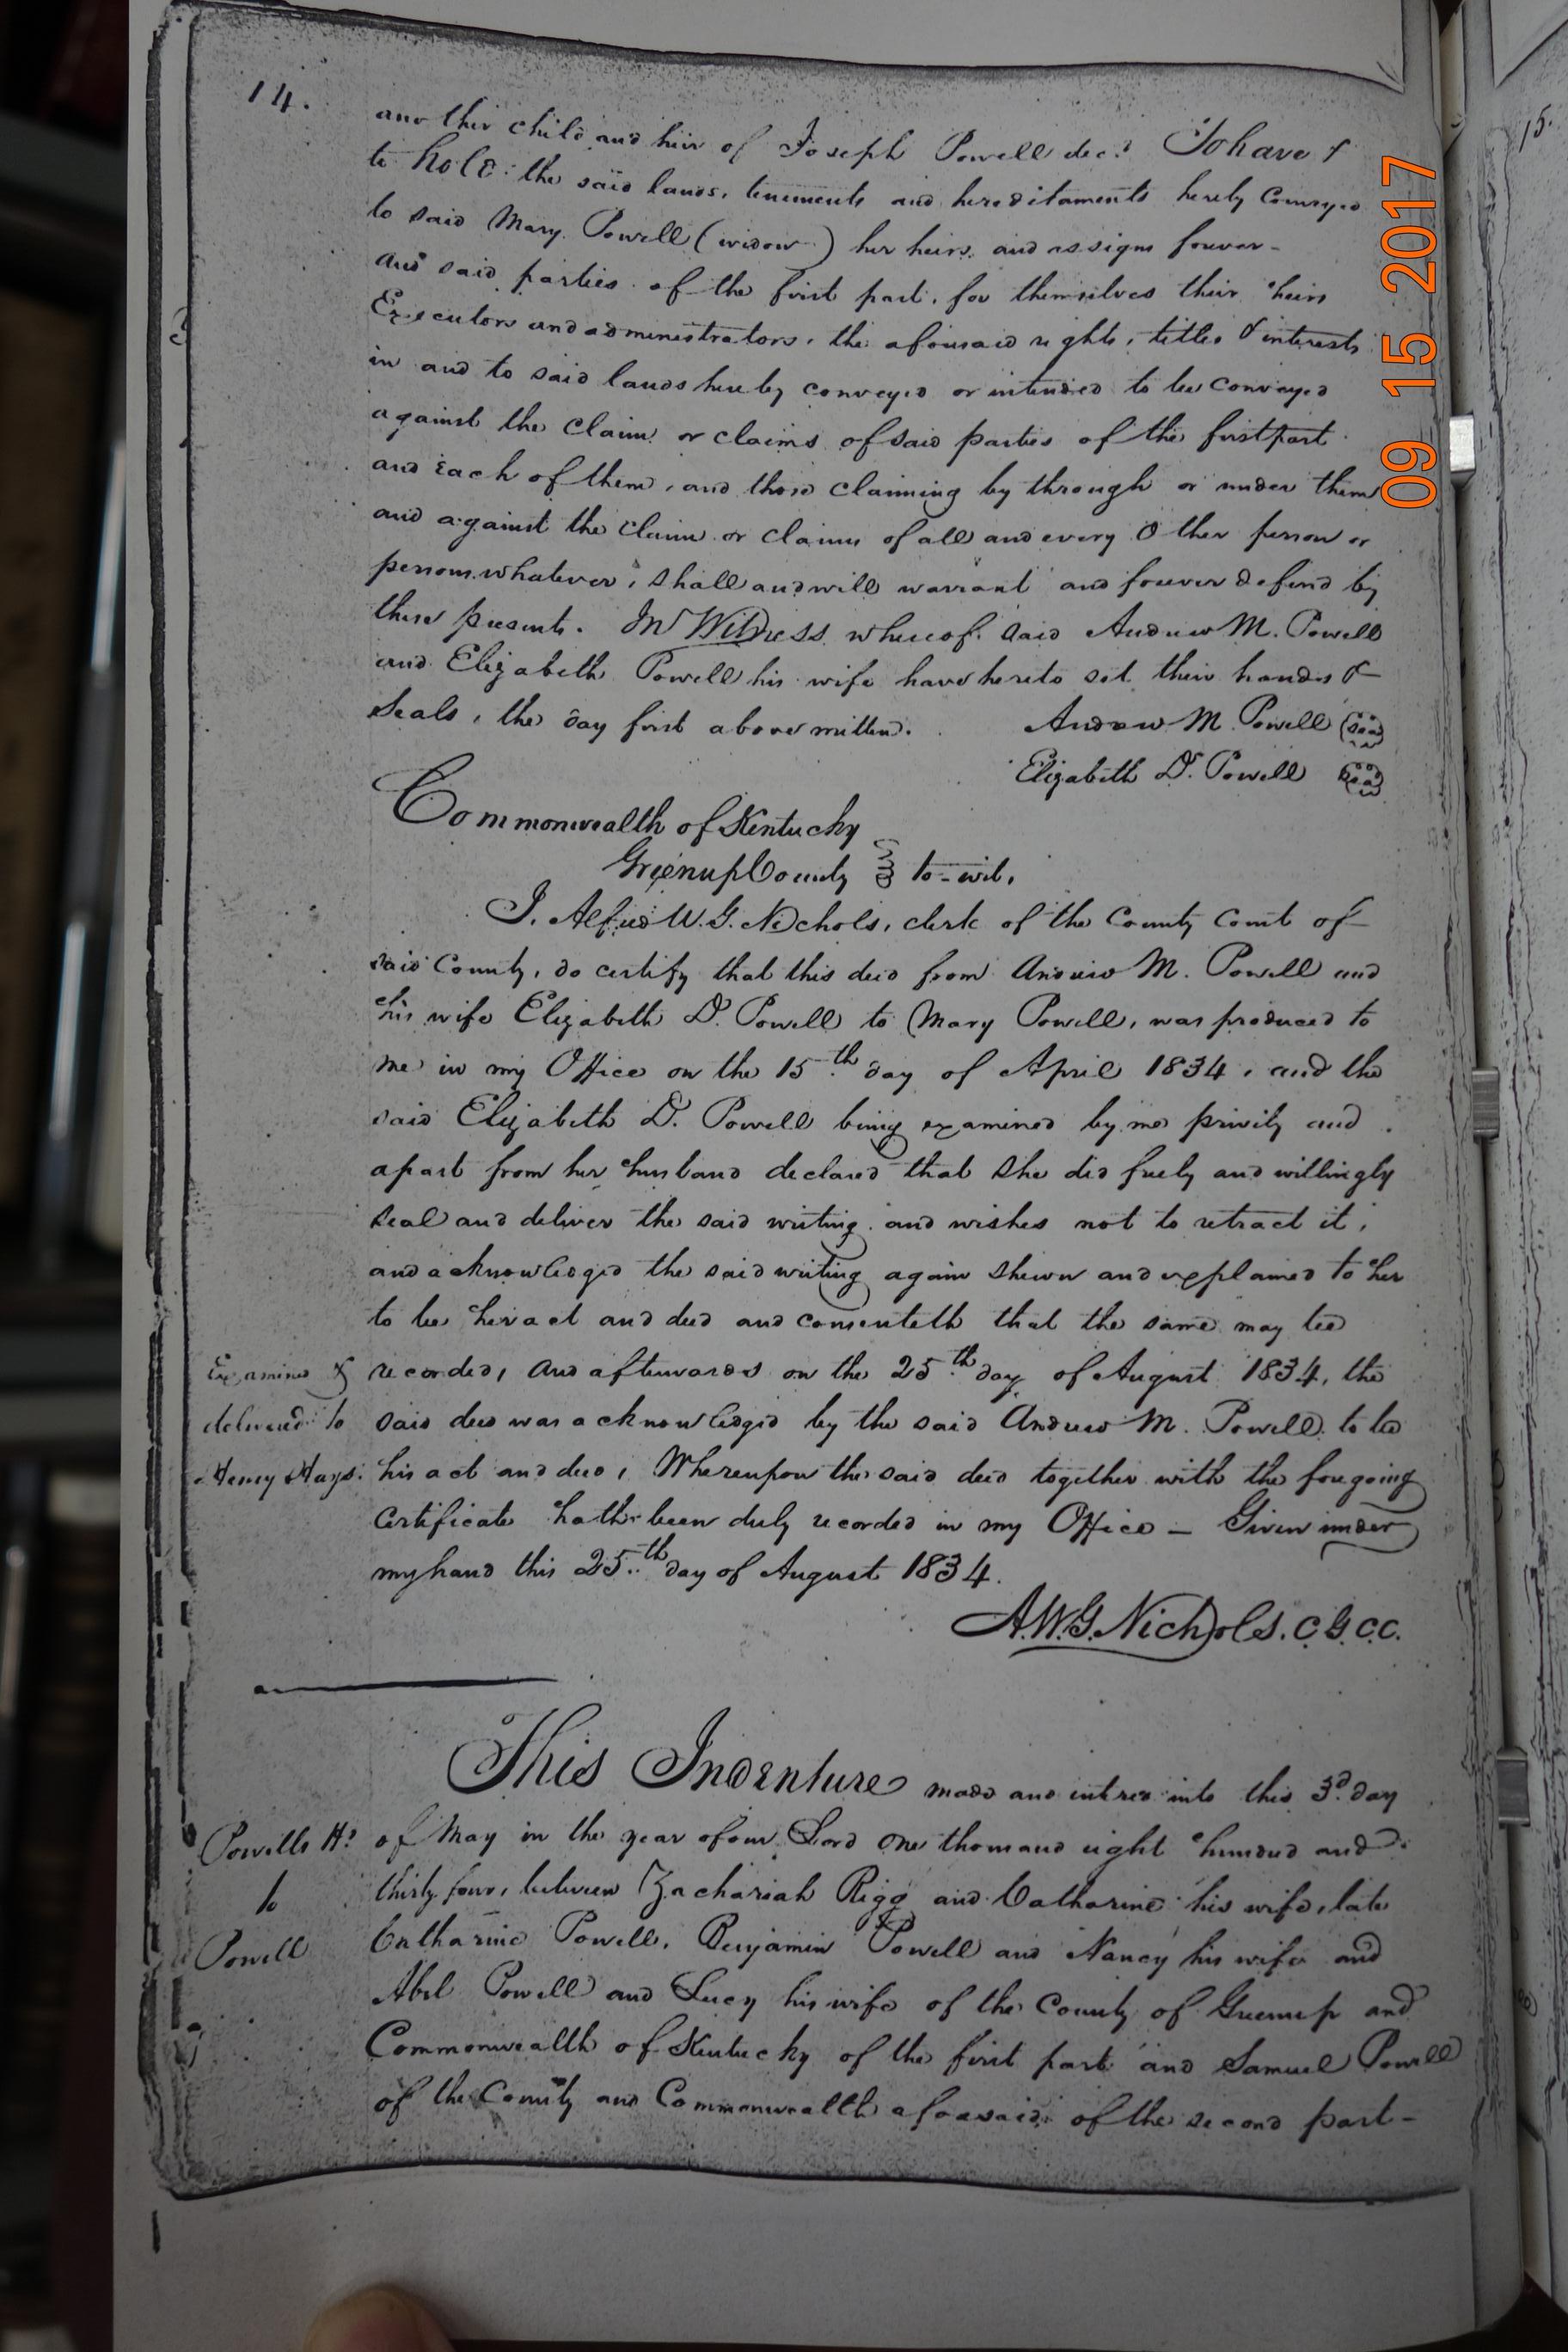 14.
another child and heir of Joseph Powell decd. To have &
to hold: the said lands, tenements and hereditaments hereby conveyed
to said Mary Powell (widow) her heirs and assigns forever -
and said parties of the first part, for themselves their heirs
Executors and administrators, the aforesaid rights, titles & interests
in and to said lands hereby conveyed or intended to be conveyed
against the claim or claims of said parties of the first part
and each of them, and those claiming by through or under them
and against the claim or claims of all and every other person or
persons whatever, shall and will warrant and forever defend by
these presents. In Witness whereof said Andrew M. Powell
and Elizabeth Powell his wife have hereto set their hands &
Seals, the day first above written. Andrew M. Powell (Seal)
Elizabeth D. Powell (Seal)
Commonwealth of Kentucky
Greenup County to-wit,
I, Alfred W. G. Nichols, clerk of the County Court of
said County, do certify that this deed from Andrew M. Powell and
his wife Elizabeth D. Powell to Mary Powell, was produced to
me in my Office on the 15th day of April 1834, and the
said Elizabeth D. Powell being examined by me privily and
apart from her husband declared that she did freely and willingly
seal and deliver the said writing and wishes not to retract it,
and acknowledged the said writing again shewn and explained to her
to be her act and deed and consenteth that the same may be
recorded, and afterwards on the 25th day of August 1834, the
said deed was acknowledged by the said Andrew M. Powell to be
his act and deed, Whereupon the said deed together with the foregoing
certificate hath been duly recorded in my Office - Given under
my hand this 25th day of August 1834.
A. W. G. Nichols. C G. C. C.
Examined &
delivered to
Henry Hays.
This Indenture made and entered into this 3d. day
of May in the year of our Lord one thousand eight hundred and
thirty four, between Zachariah Rigg and Catharine his wife, late
Catharine Powell, Benjamin Powell and Nancy his wife and
Abel Powell and Lucy his wife of the County of Greenup and
Commonwealth of Kentucky of the first part and Samuel Powell
of the County and Commonwealth aforesaid of the second part -
Powells Hs
to
Powell
09 15 2017
15.